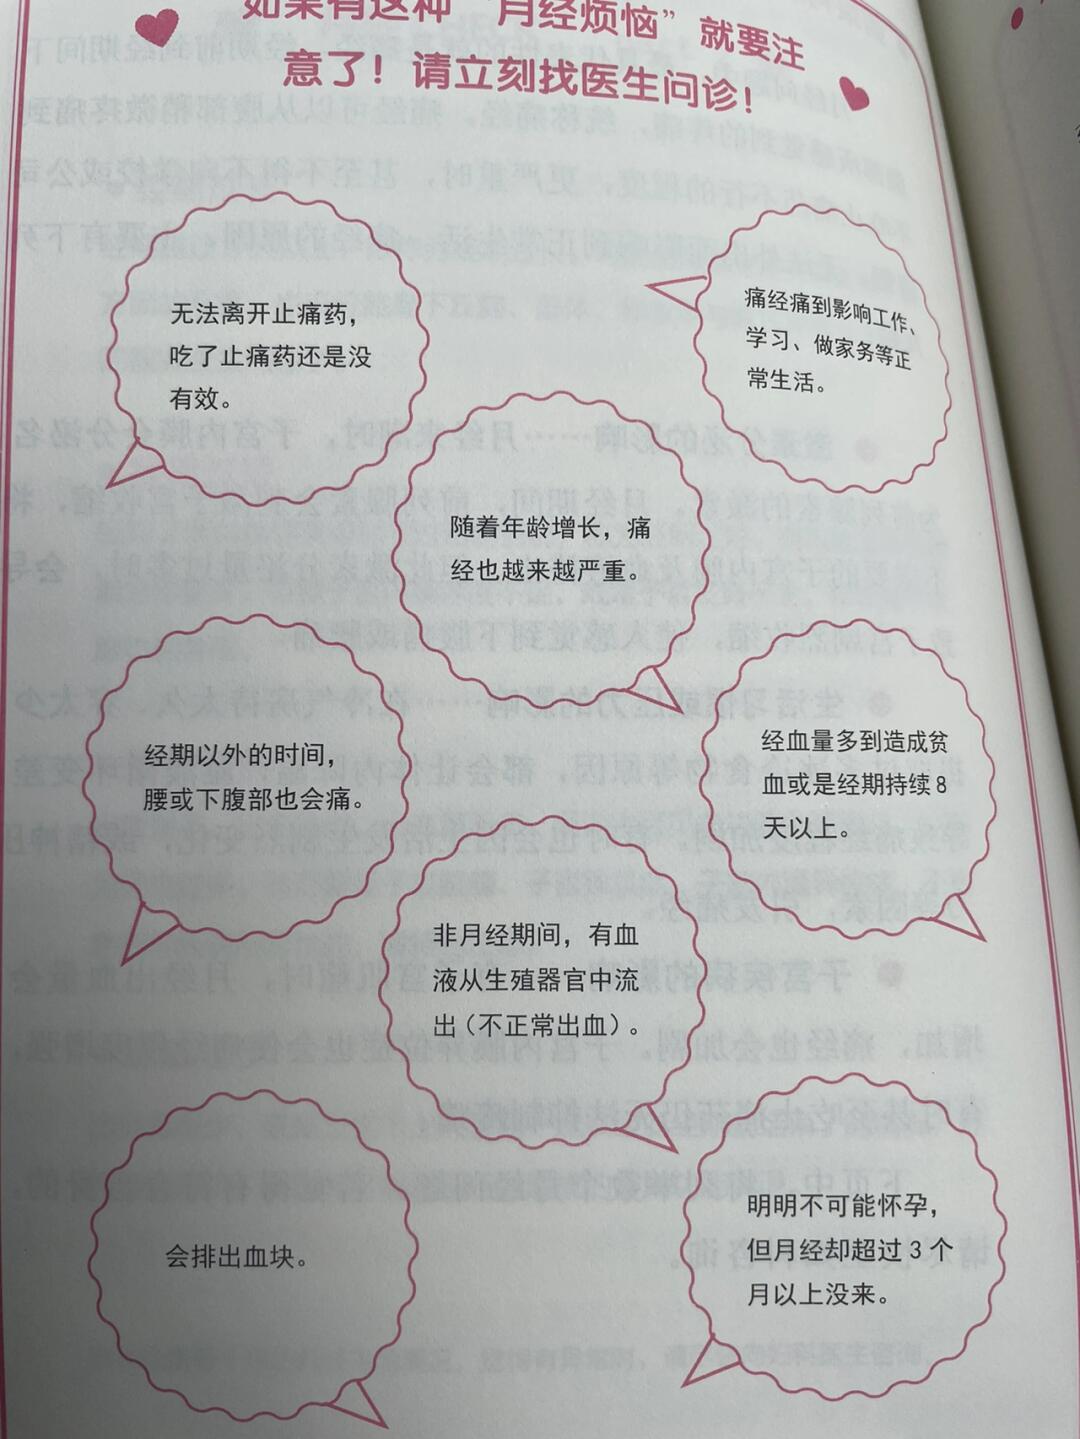 如果有这种“月经烦恼”就要注
意了！请立刻找医生问诊！
无法离开止痛药，
吃了止痛药还是没
有效。
痛经痛到影响工作、
学习、做家务等正
常生活。
随着年龄增长，痛
经也越来越严重。
经期以外的时间，
腰或下腹部也会痛。
经血量多到造成贫
血或是经期持续8
天以上。
非月经期间，有血
液从生殖器官中流
出（不正常出血）。
会排出血块。
明明不可能怀孕，
但月经却超过3个
月以上没来。